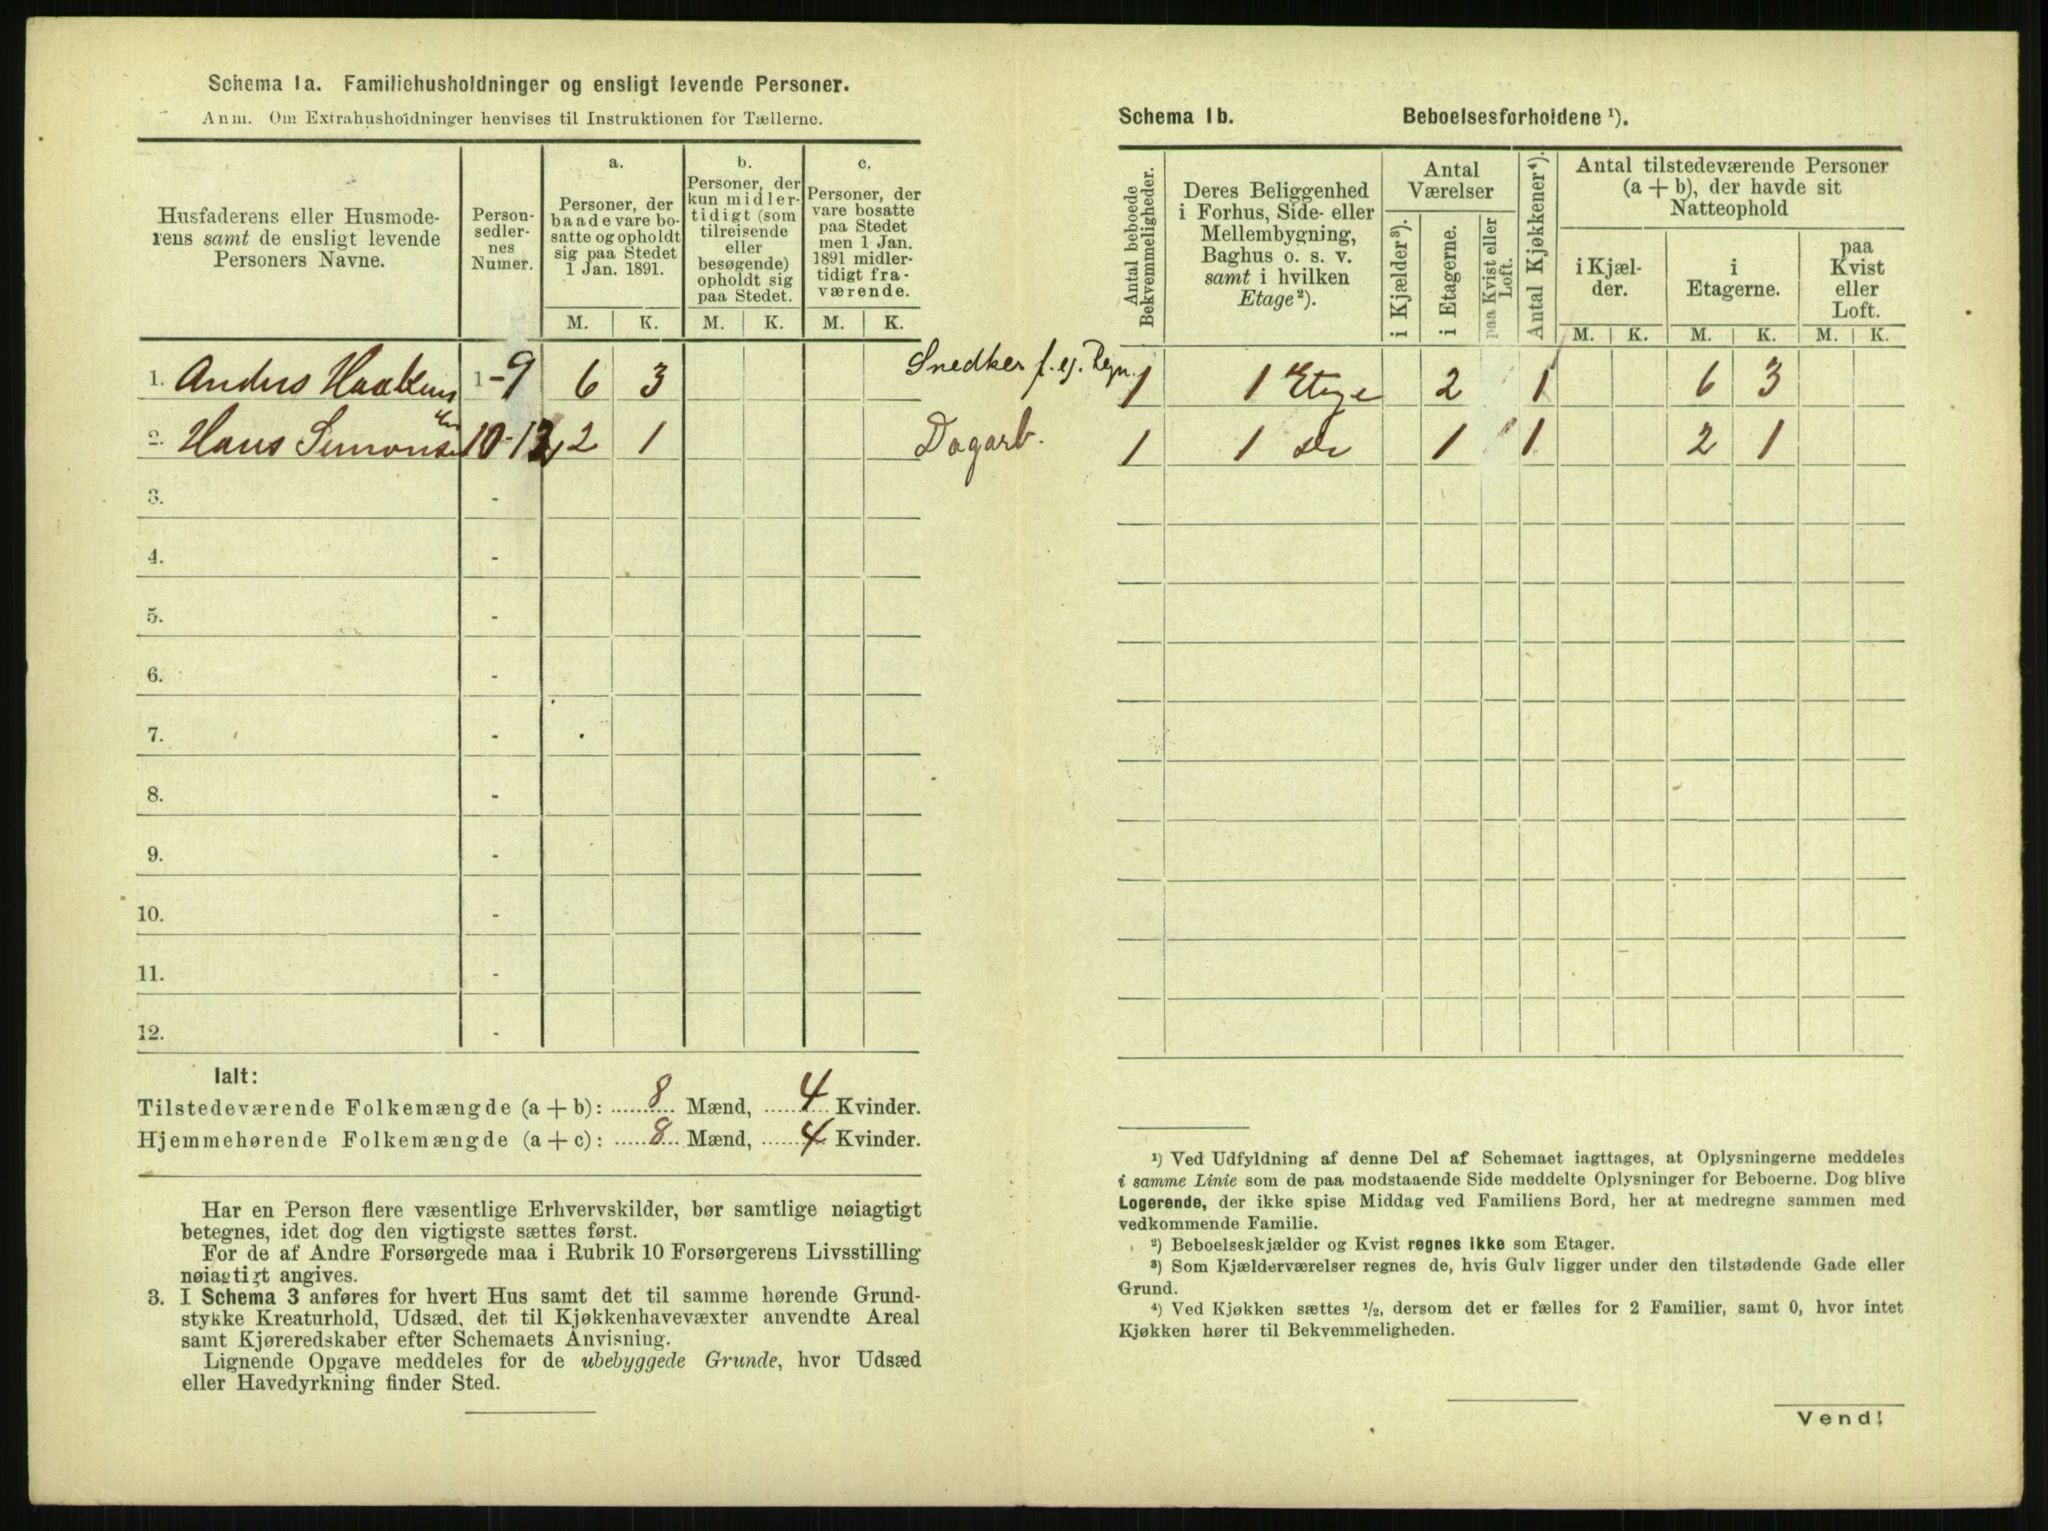 Schema 1a. Familiehusholdninger og ensligt levende Personer.
Anm. Om Extrahusholdninger henvises til Instruktionen for Tællerne.
Husfaderens eller Husmode-
rens samt de ensligt levende
Personers Navne.
Person-
sedler-
nes
Numer.
a.
Personer, der
baade vare bo-
satte og opholdt
sig paa Stedet
1 Jan. 1891.
b.
Personer, der
kun midler-
tidigt (som
tilreisende
eller
besøgende)
opholdt sig
paa Stedet.
c.
Personer, der
vare bosatte
paa Stedet
men 1 Jan.
1891 midler-
tidigt fra-
værende.
M. K. M. K. M. K.
1. Anders Haakens 1-9 6 3 Snedker f. ej. Regn.
2. Hans Simonsen 10-12 2 1 Dagarb.
3. -
4. -
5. -
6. -
7. -
8. -
9. -
10. -
11. -
12. -
Ialt:
Tilstedeværende Folkemængde (a + b): 8 Mænd, 4 Kvinder.
Hjemmehørende Folkemængde (a + c): 8 Mænd, 4 Kvinder.
Har en Person flere væsentlige Erhvervskilder, bør samtlige nøiagtigt
betegnes, idet dog den vigtigste sættes først.
For de af Andre Forsørgede maa i Rubrik 10 Forsørgerens Livsstilling
nøiagtigt angives.
3. I Schema 3 anføres for hvert Hus samt det til samme hørende Grund-
stykke Kreaturhold, Udsæd, det til Kjøkkenhavevæxter anvendte Areal
samt Kjøreredskaber efter Schemaets Anvisning.
Lignende Opgave meddeles for de ubebyggede Grunde, hvor Udsæd
eller Havedyrkning finder Sted.
Schema 1b. Beboelsesforholdene ¹).
Antal beboede
Bekvemmeligheder.
Deres Beliggenhed
i Forhus, Side- eller
Mellembygning,
Baghus o. s. v.
samt i hvilken
Etage ²).
Antal
Værelser
i Kjælder ³).
i Etagerne.
paa Kvist eller
Loft.
Antal Kjøkkener ⁴).
Antal tilstedeværende Personer
(a + b), der havde sit
Natteophold
i Kjæl-
der.
i
Etagerne.
paa
Kvist
eller
Loft.
M. K. M. K. M. K.
1 1 Etage 2 1 6 3
1 1 do 1 1 2 1
¹) Ved Udfyldning af denne Del af Schemaet iagttages, at Oplysningerne meddeles
i samme Linie som de paa modstaaende Side meddelte Oplysninger for Beboerne. Dog blive
Logerende, der ikke spise Middag ved Familiens Bord, her at medregne sammen med
vedkommende Familie.
²) Beboelseskjælder og Kvist regnes ikke som Etager.
³) Som Kjælderværelser regnes de, hvis Gulv ligger under den tilstødende Gade eller
Grund.
⁴) Ved Kjøkken sættes ½, dersom det er fælles for 2 Familier, samt 0, hvor intet
Kjøkken hører til Bekvemmeligheden.
Vend!